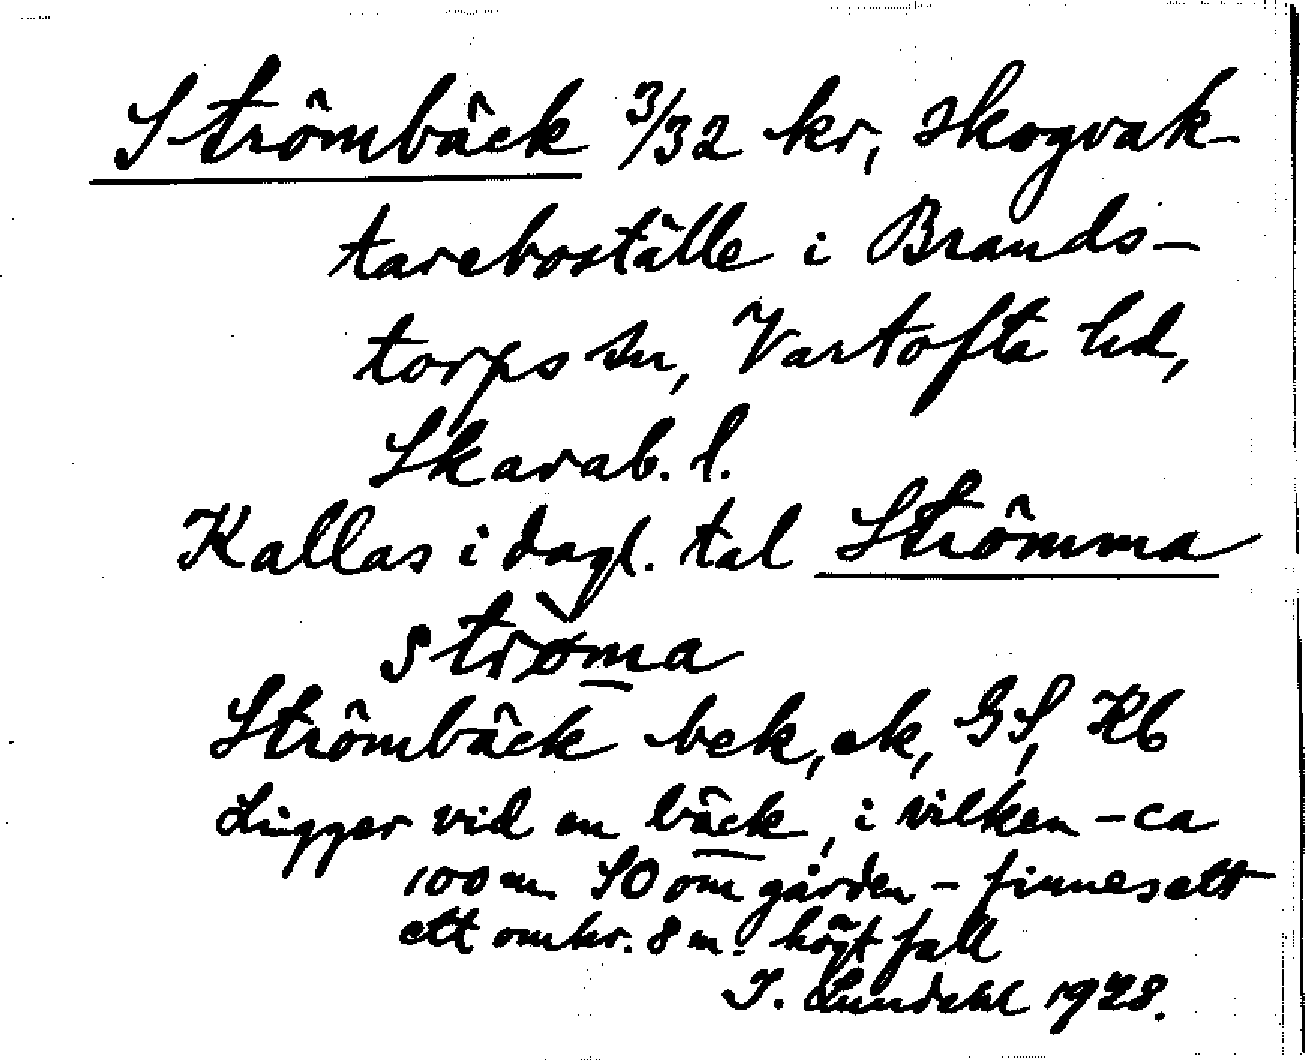 Strömbäck 3/32 kr, skogvak-
tareboställe i Brands-
torps sn, Vartofta hd,
Skarab. l.
Kallas i dagl. tal Strömma
strøma
Strömbäck bek, ek, GS, Kb
Ligger vid en bäck, i vilken - ca
100 m SO om gården - finnes ett
ett omkr. 8 m. högt fall
I. Lundahl 1928.